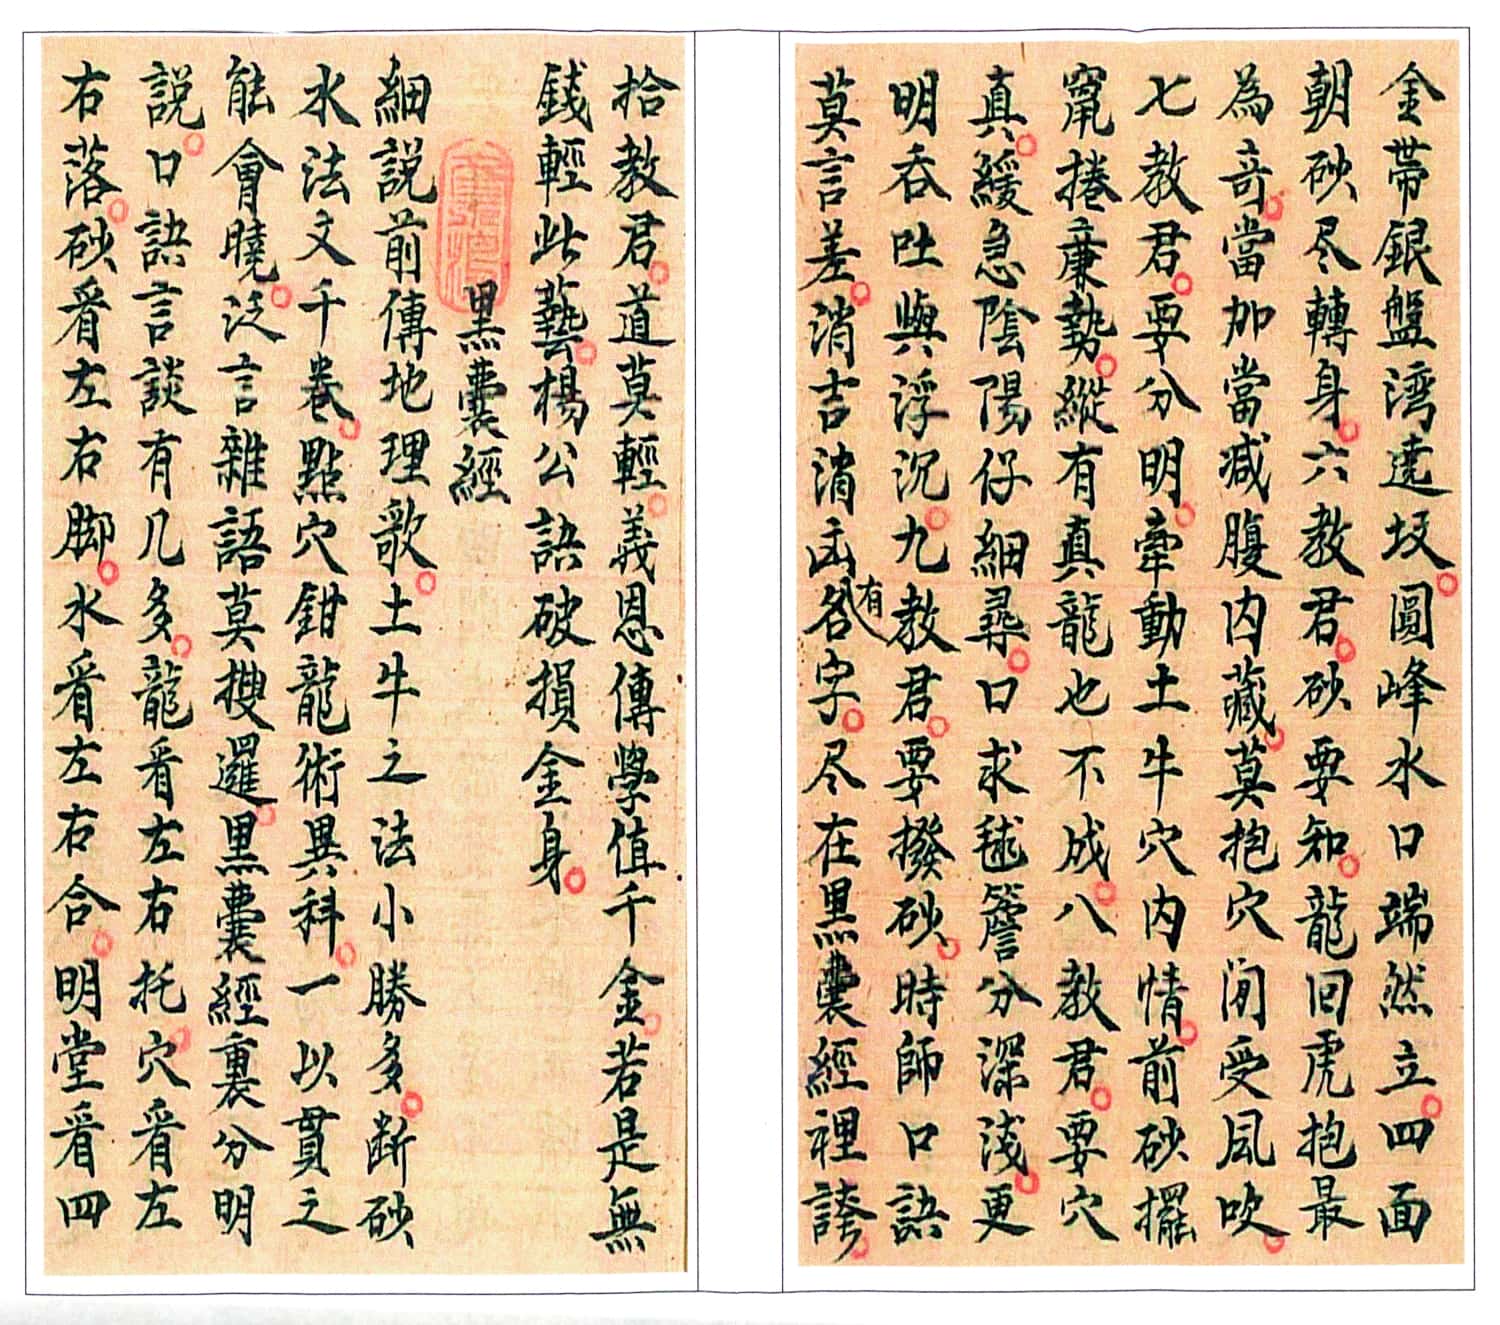 金帶銀盤湾遶坟圓峰水口端然立四面
朝砂尽轉身六教君砂要知龍回虎抱最
為竒當加當减腹内藏莫抱穴闲受風吹
七教君要分明牽動土牛穴内情前砂擺
竄捲廉勢縱有真龍也不成八教君要穴
真緩急陰陽仔細尋口求毬簷分深淺更
明吞吐與浮沉九教君要撥砂時師口訣
莫言差消吉消凶各有字尽在黑囊經裡誇
拾教君道莫輕義恩傳學值千金若是無
錢輕此藝楊公訣破損金身
黑囊經
細説前傳地理歌土牛之法小勝多断砂
水法文千卷點穴鉗龍術異科一以貫之
能會曉泛言雜語莫搜邏黑囊經裏分明
説口訣言談有几多龍看左右托穴看左
右落砂看左右脚水看左右合明堂看四